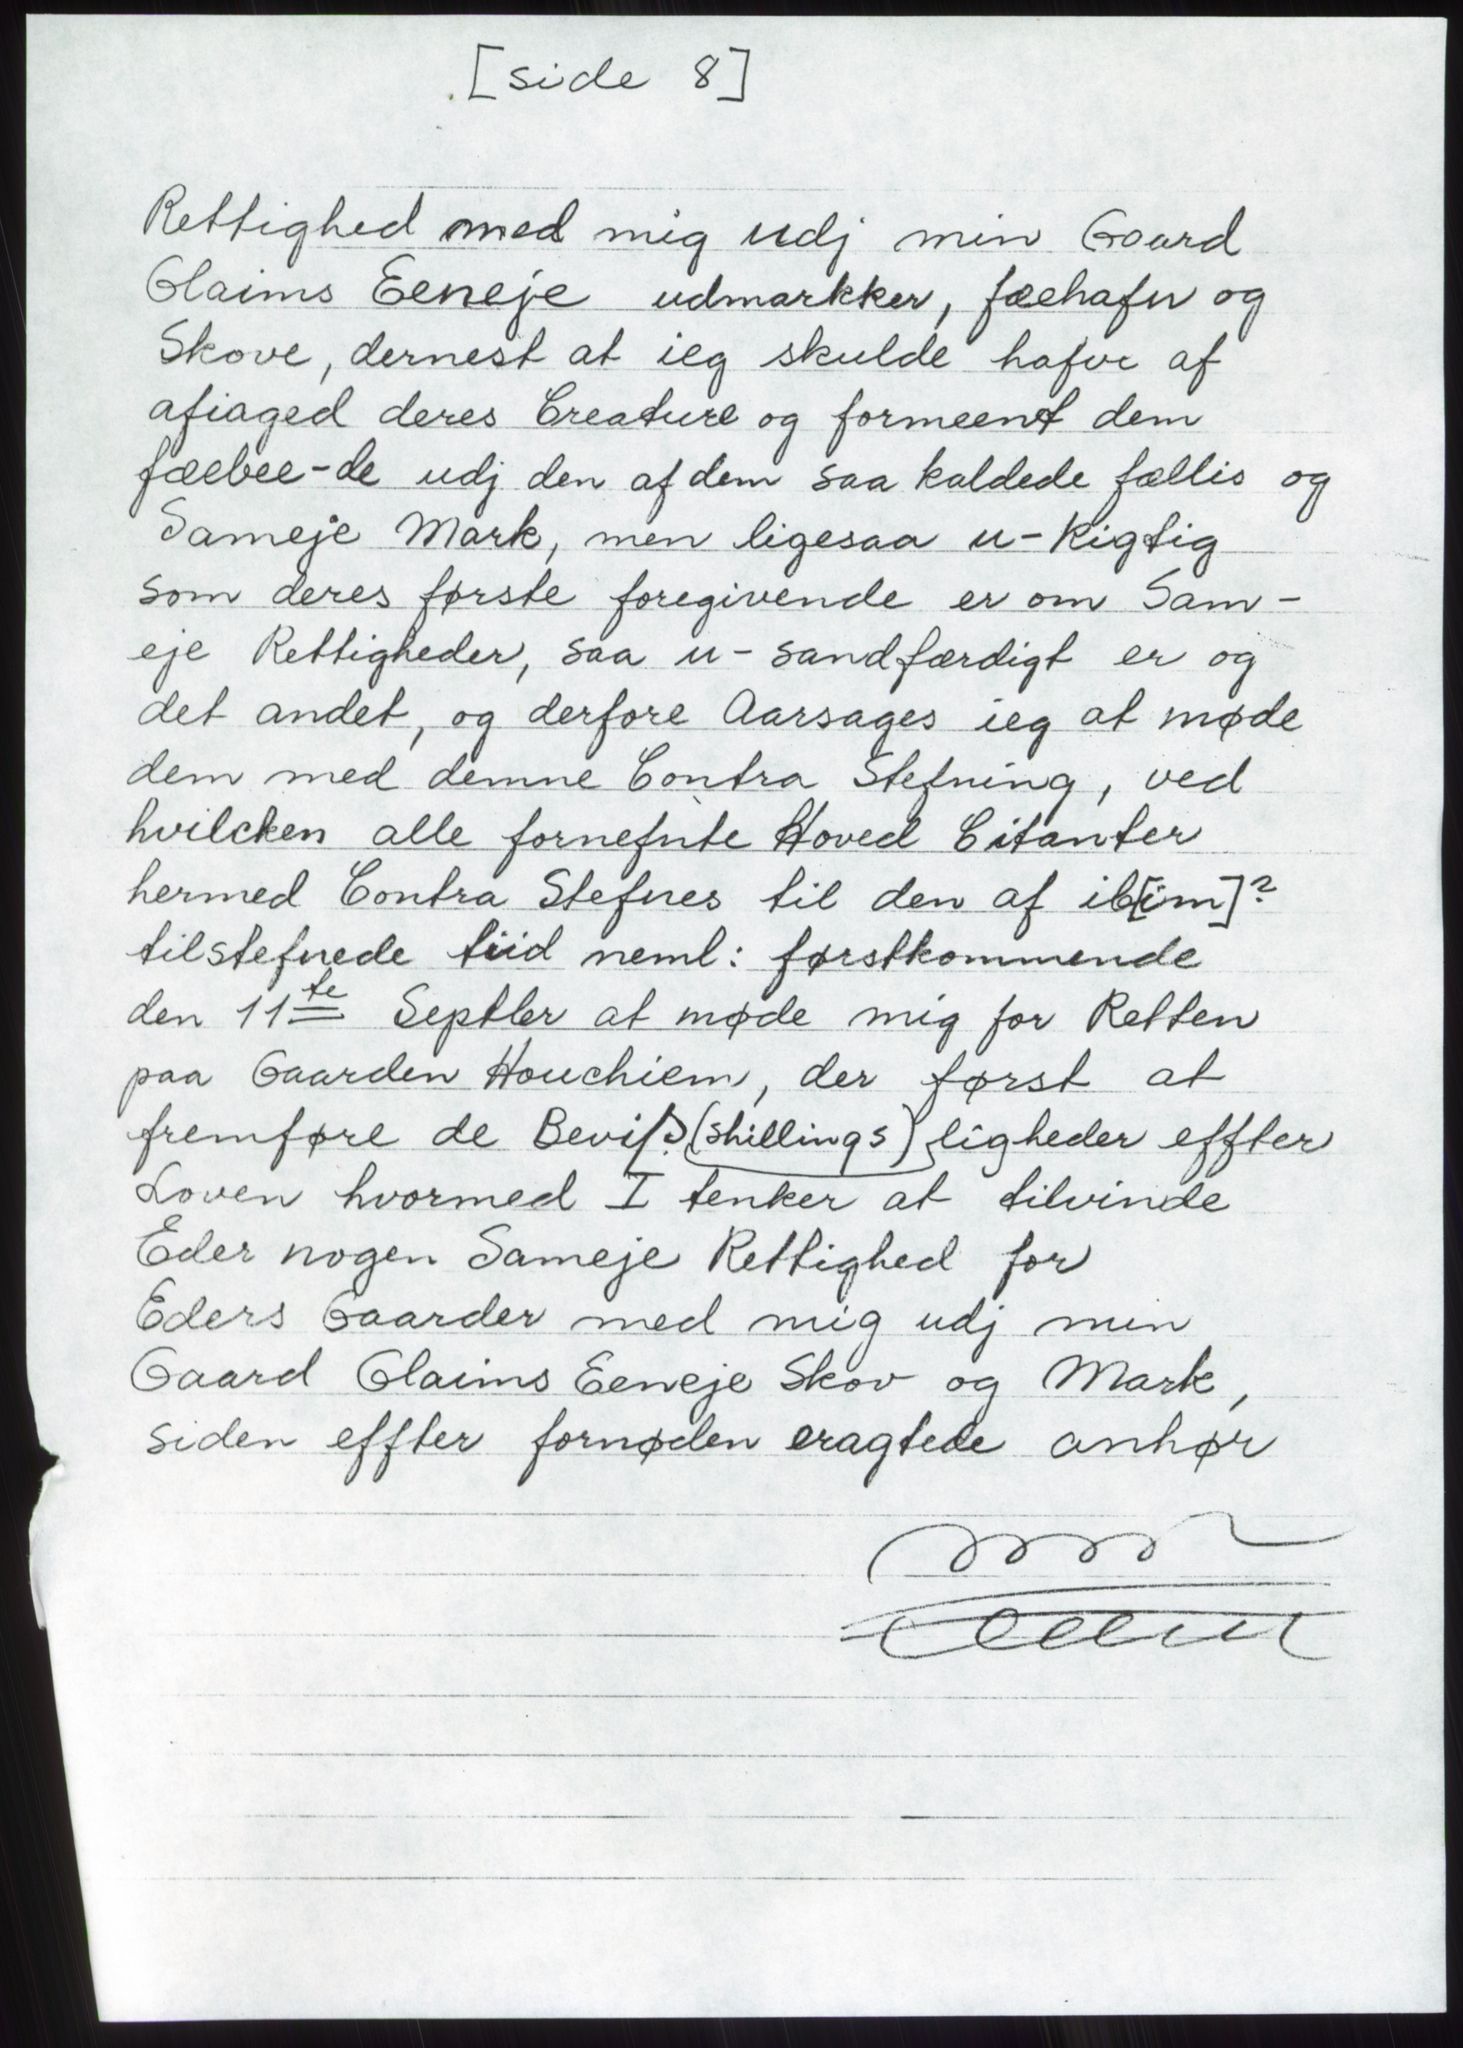 [side 8]
Rettighed med mig udj min Gaard
Glaims Eeneje udmarkker, fæehafn og
Skove, dernest at ieg skulde hafve af
afiaged deres Creature og formeent dem
fæebee-de udj den af dem saa kaldede fællis og
Sameje Mark, men ligesaa u-Rigtig
som deres første foregivende er om Sam-
eje Rettigheder, saa u-sandfærdigt er og
det andet, og derfore Aarsages ieg at møde
dem med denne Contra Stefning, ved
hvilcken alle fornefnte Hoved Citanter
hermed Contra Stefnes til den af ib[im]?
tilstefnede tiid neml: førstkommende
den 11te Septbr at møde mig for Retten
paa Gaarden Houchiem, der først at
fremføre de Beviß? (shillings) ligheder effter
Loven hvormed I tenker at tilvinde
Eder nogen Sameje Rettighed for
Eders Gaarder med mig udj min
Gaard Glaims Eeneje Skov og Mark,
siden effter fornøden eragtede anhør